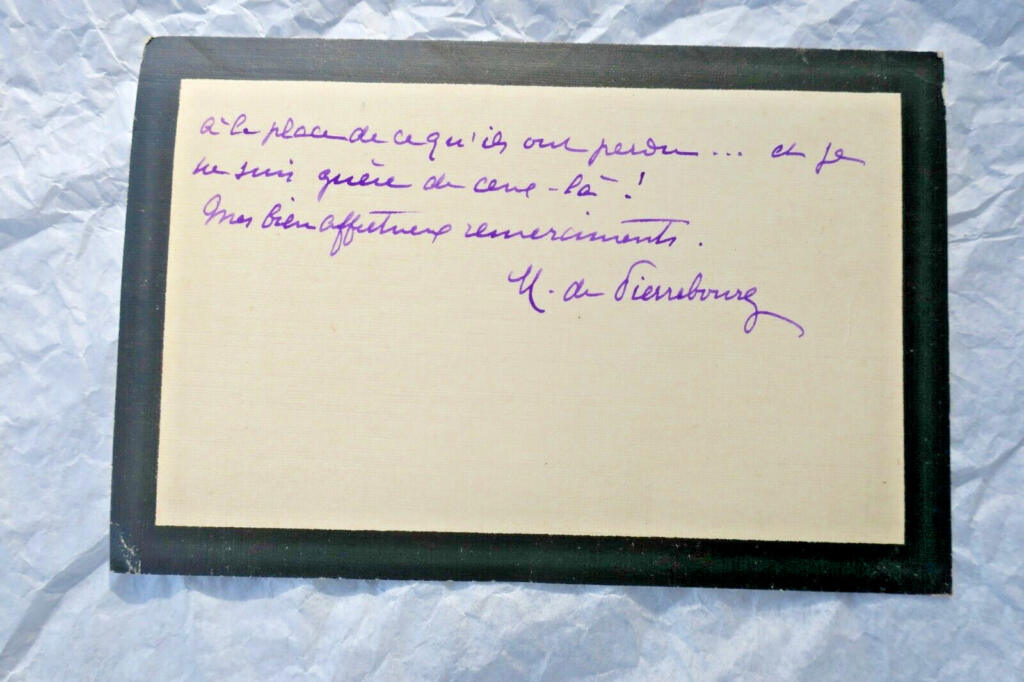 à la place de ce qu'ils ont perdu... et je
ne suis guère de ceux-là !
Mes bien affectueux remerciments.
M. de Pierrebourg